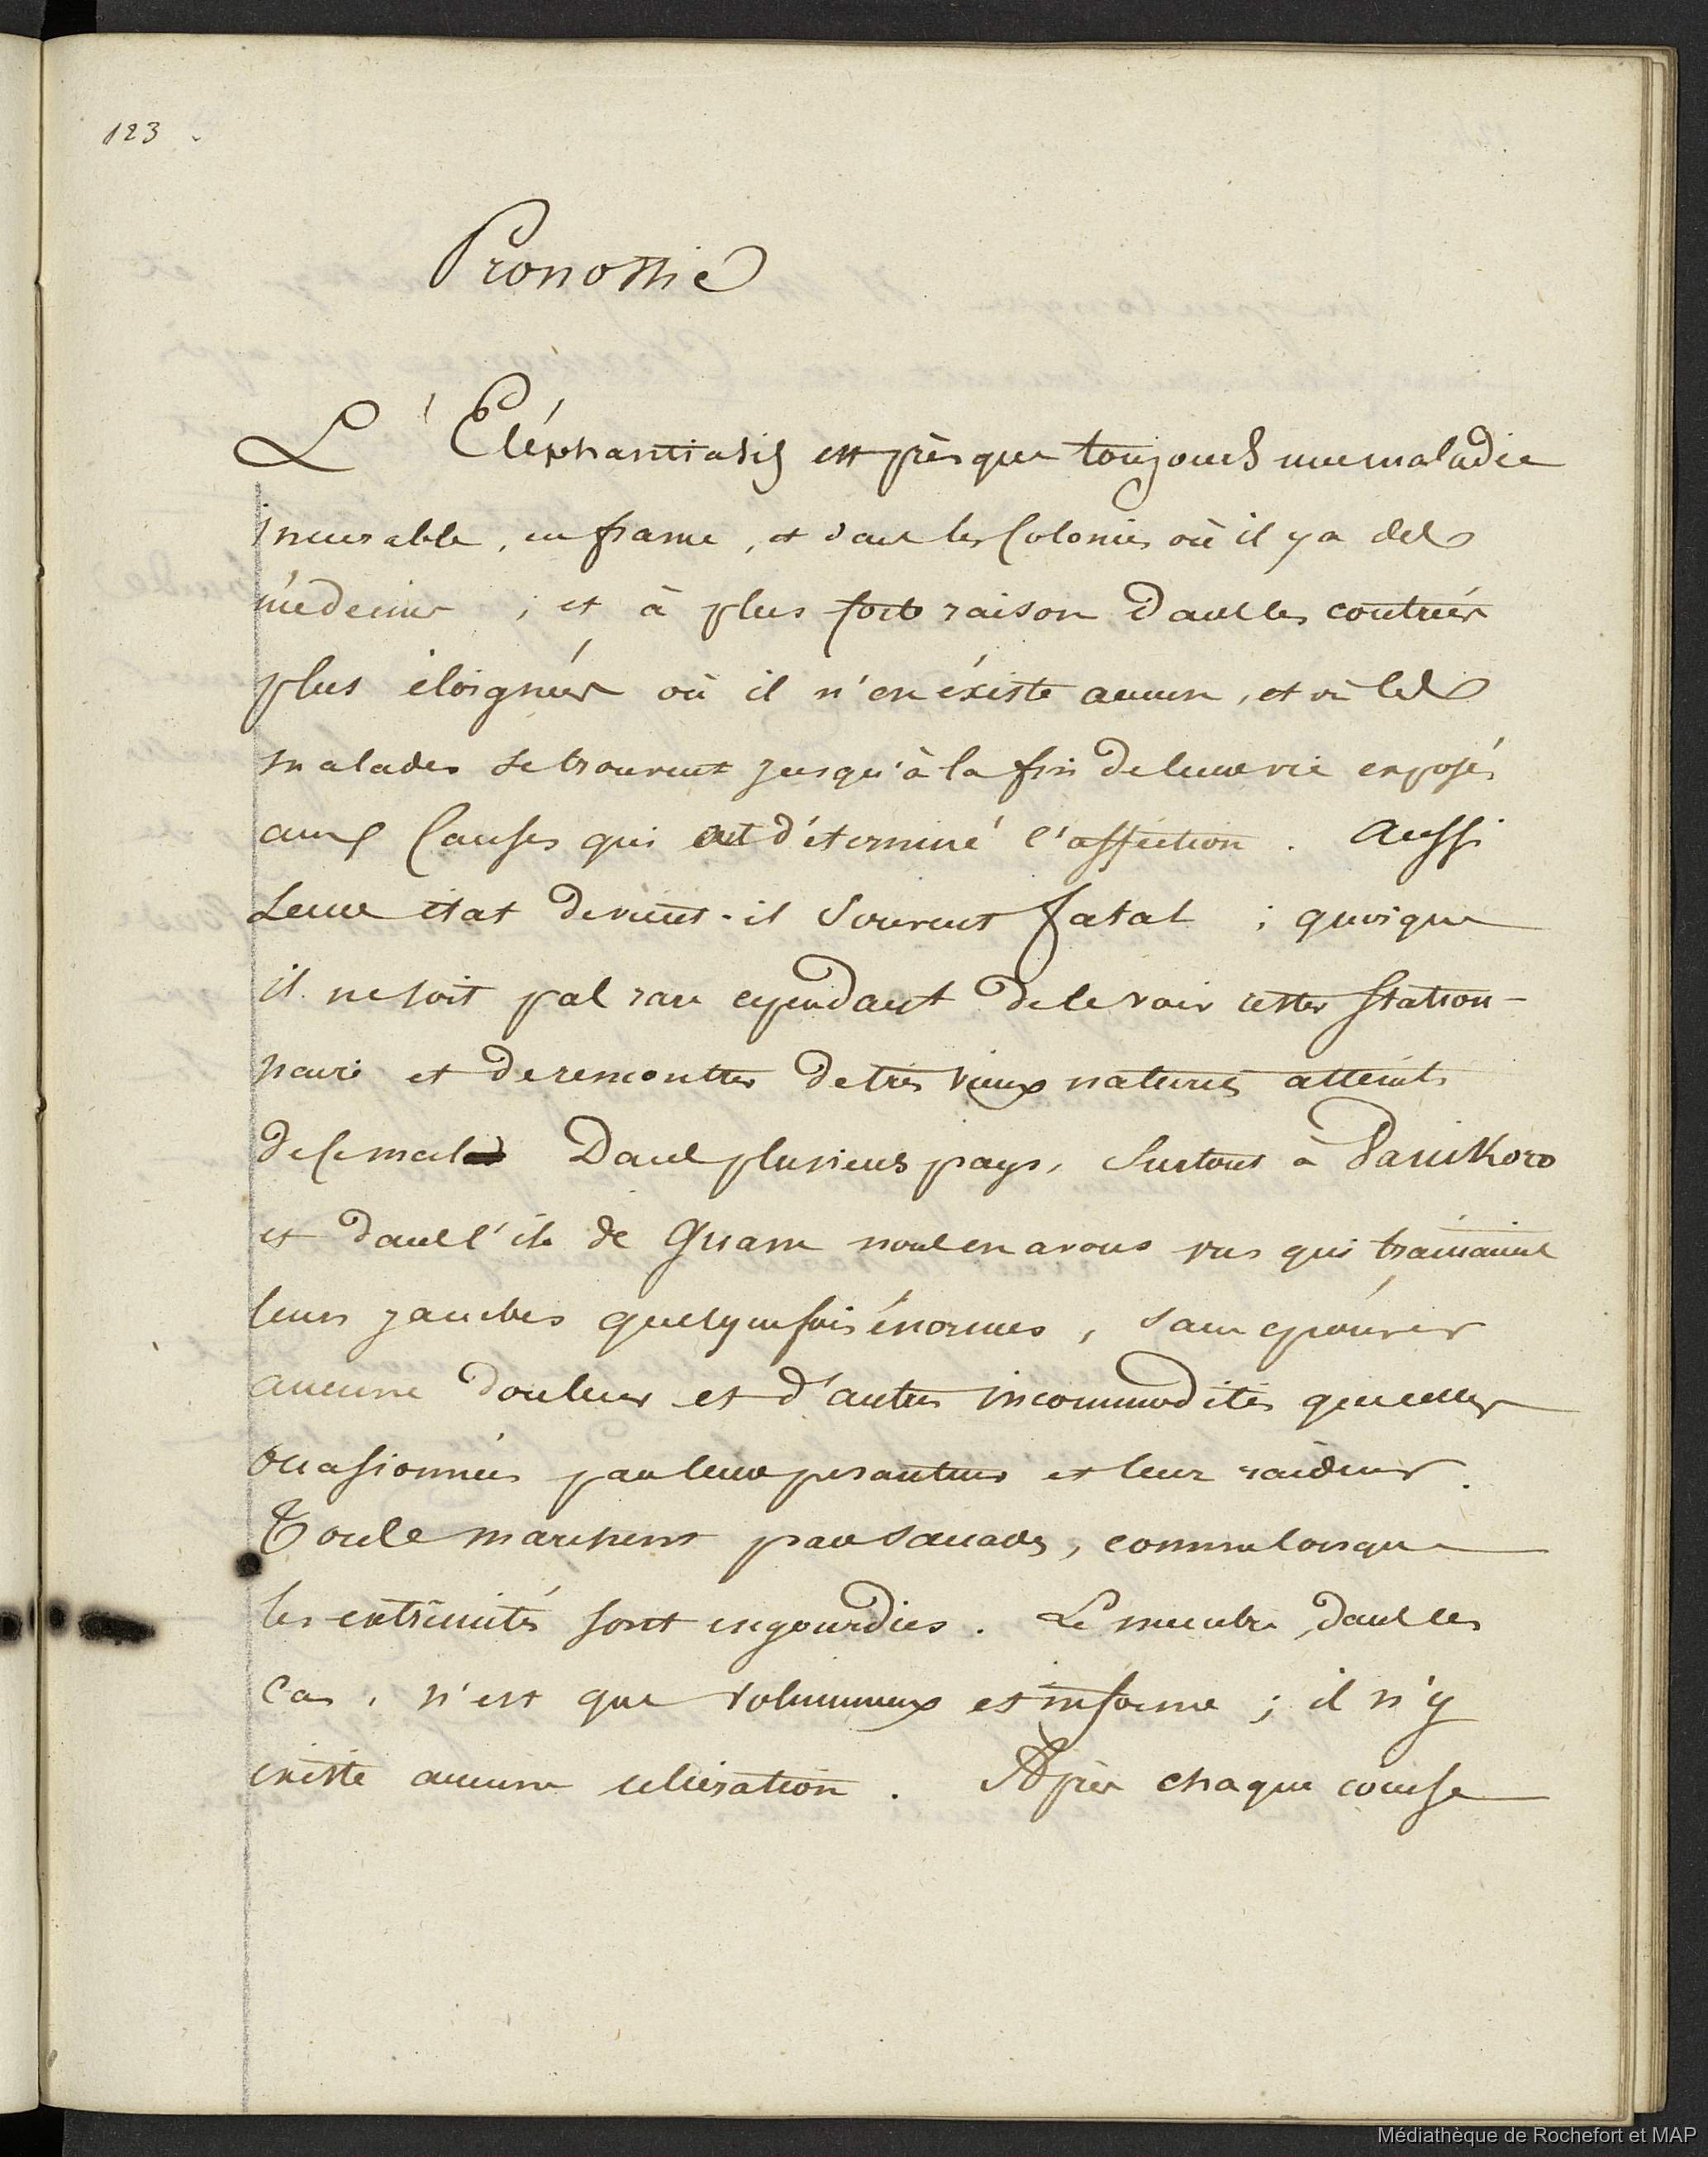 123.
Pronostic
L'Eléphantiasis est prèsque toujours une maladie
incurable, en france, et dans les Colonies où il y a des
médecins ; et à plus forte raison dans les contrées
plus éloignées où il n'en éxiste aucun, et où les
malades se trouvent jusqu'à la fin de leur vie exposés
aux Causes qui ont déterminé l'affection. Aussi
Leur état devient-il Souvent fatal ; quoique
il ne soit pas rare cependant de le voir rester Station-
naire et de rencontrer de très vieux naturels atteints
de Ce mal Dans plusieurs pays, Surtout à Vanikoro
et dans l'ile de Guam nous en avons vus qui trainaient
leurs jambes quelquefois énormes, sans éprouver
aucune douleur et d'autres incommodités que celles
occasionnées par leur pesanteur et leur raideur.
Tous le marchent par saccades, comme lorsque
les extrémités sont engourdies. Le membre, dans ces
Cas, n'est que volumineux et informe ; il n'y
existe aucune ulcération. Après chaque course
Médiathèque de Rochefort et MAP